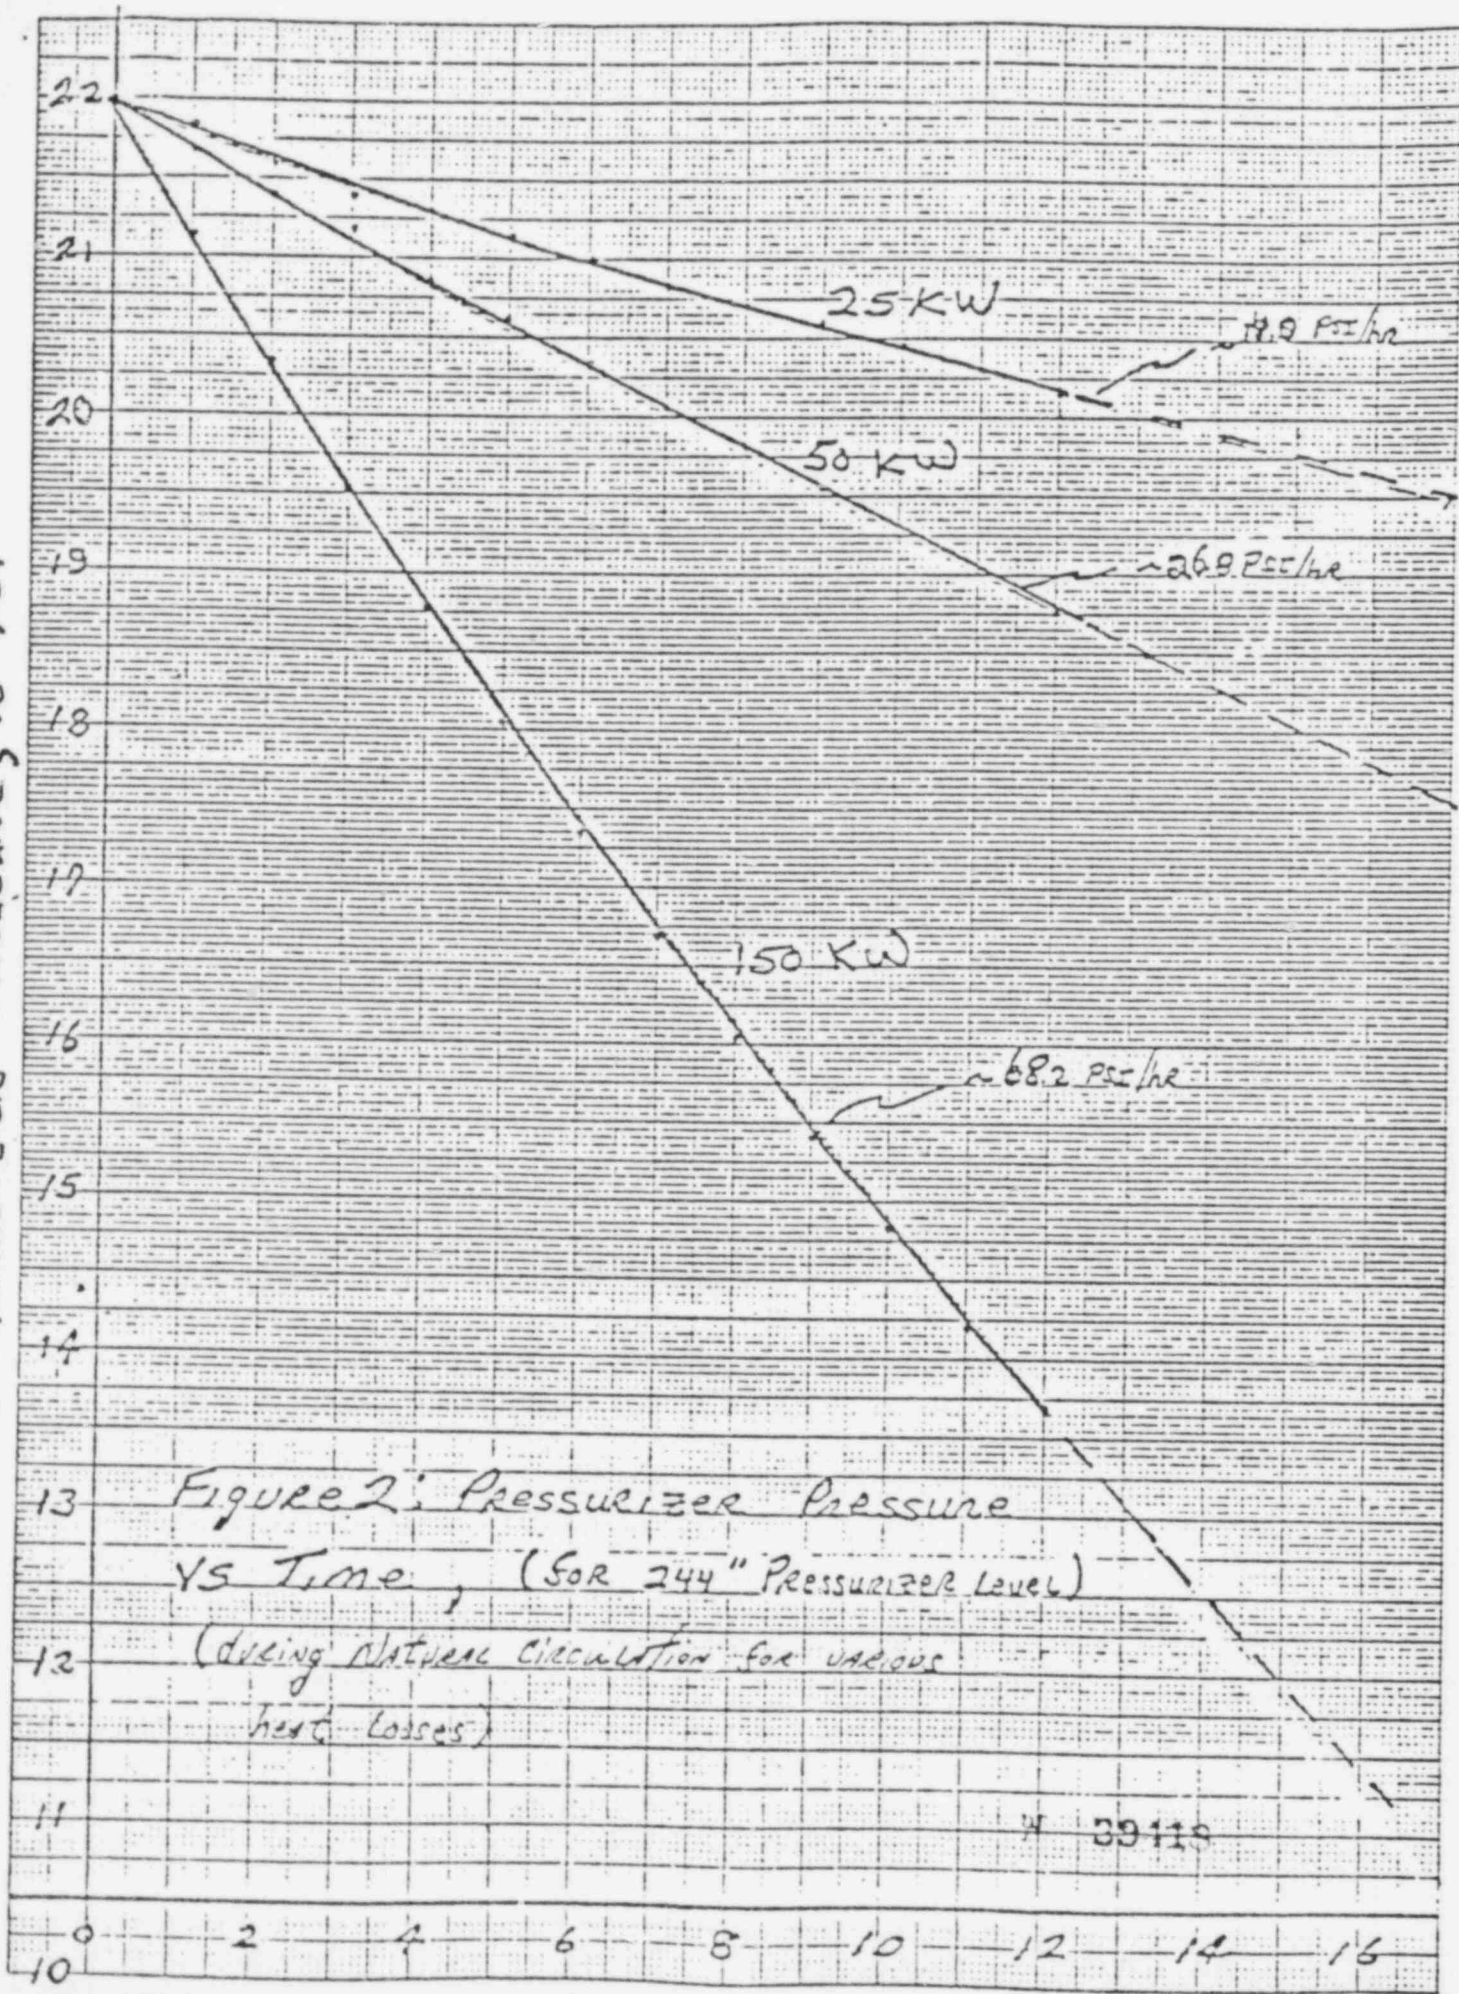 22
21
20
19
18
17
16
15
14
13
12
11
10
25 KW
PSI/hr
50 KW
PSI/hr
150 KW
~68.2 PSI/hr
FIGURE 2: PRESSURIZER PRESSURE
VS Time, (FOR 244" PRESSURIZER Level)
(during NATURAL CIRCULATION for VARIOUS
heat Losses)
0 2 4 6 8 10 12 14 16